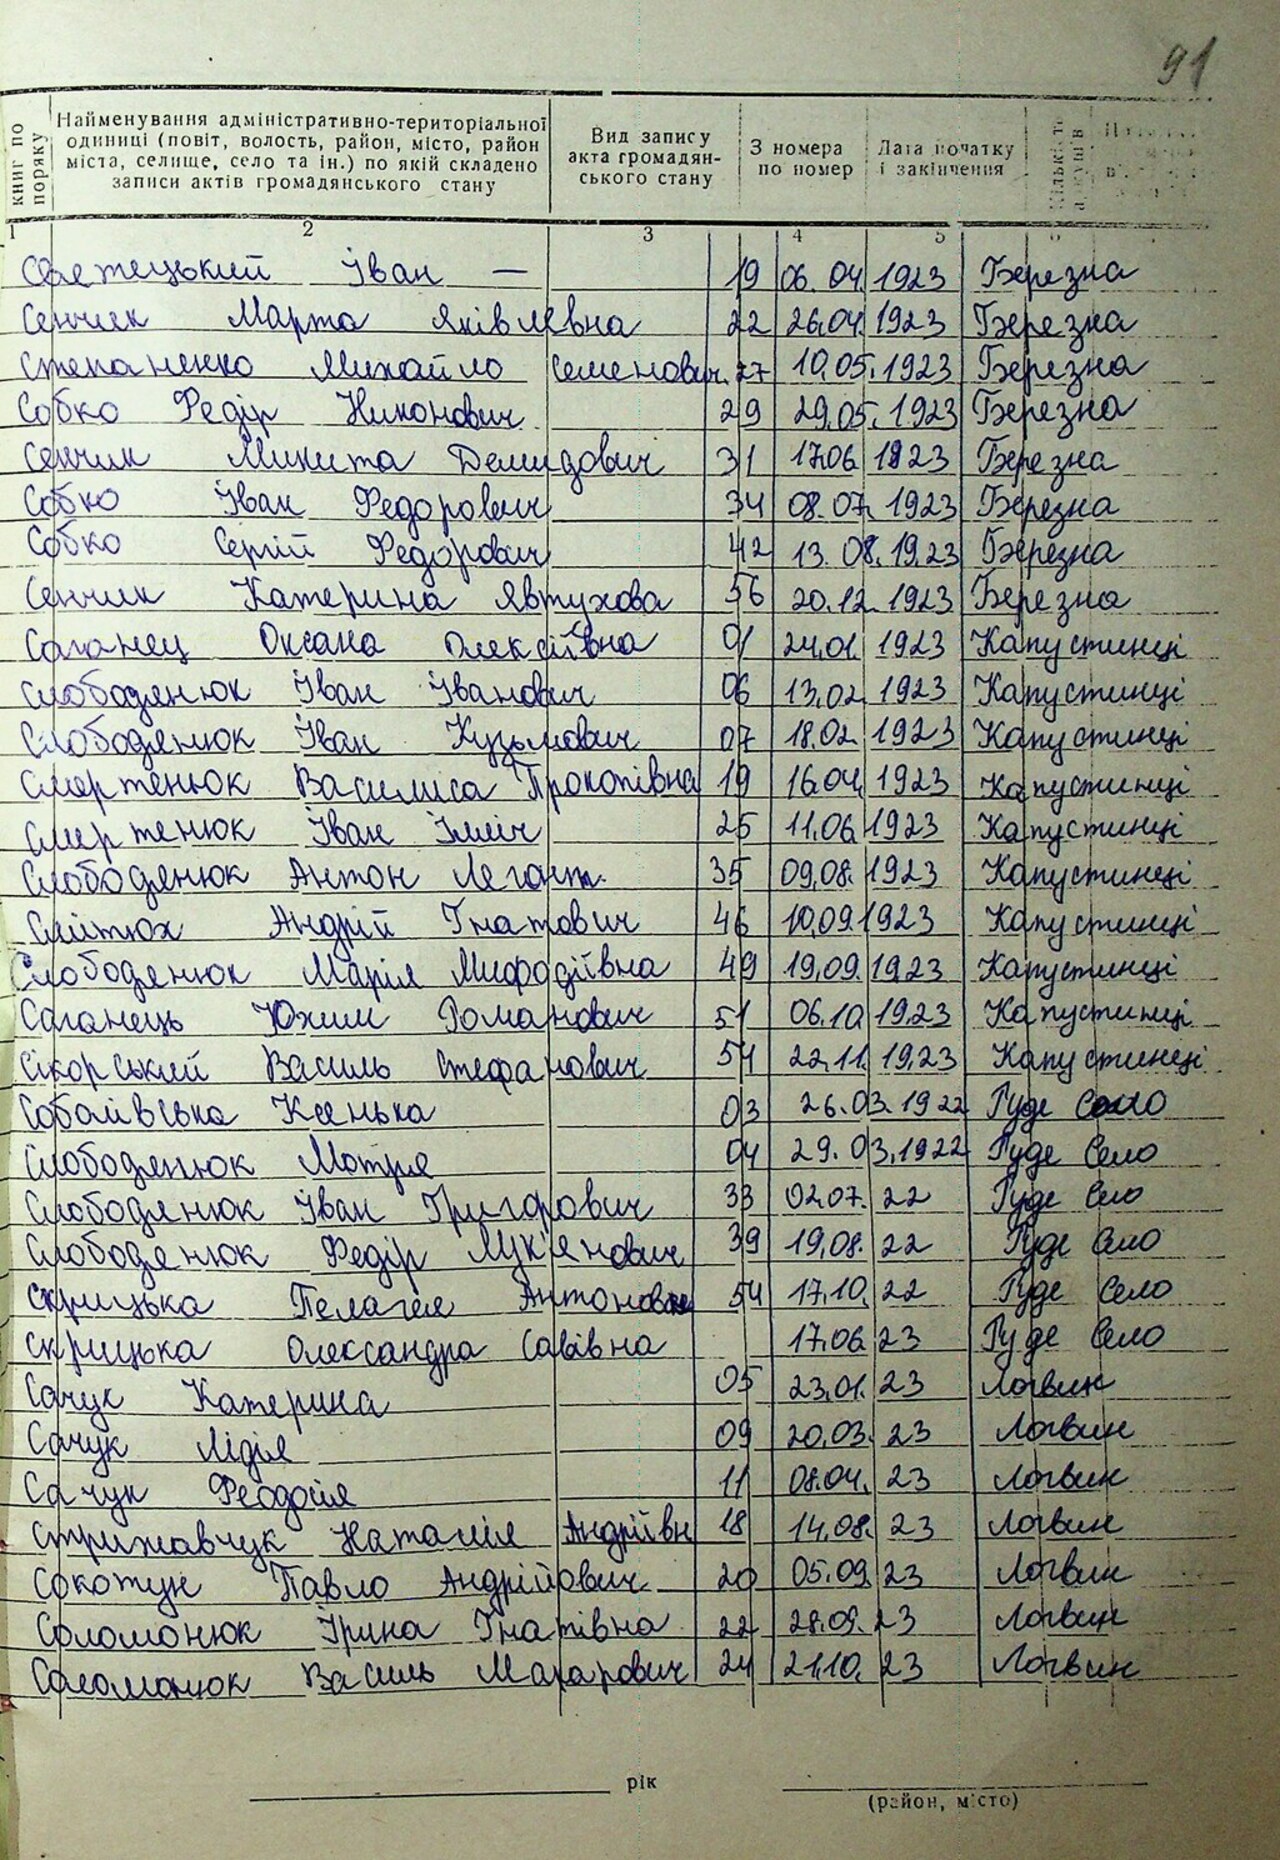 91
книг по порядку
Найменування адміністративно-територіальної
одиниці (повіт, волость, район, місто, район
міста, селище, село та ін.) по якій складено
записи актів громадянського стану
Вид запису
акта громадян-
ського стану
З номера
по номер
Дата початку
і закінчення
1 2 3 4 5 6
Святецький Іван — 19 06.04.1923 Березна
Сенчик Марта Яківлевна 22 26.04.1923 Березна
Степаненко Михайло Семенович 27 10.05.1923 Березна
Собко Федір Никонович 29 29.05.1923 Березна
Сенчик Микита Демидович 31 17.06 1923 Березна
Собко Іван Федорович 34 08.07.1923 Березна
Собко Сергій Федорович 42 13.08.1923 Березна
Сенчик Катерина Явтухова 56 20.12.1923 Березна
Саганец Оксана Олексіївна 01 24.01.1923 Капустинці
Слободенюк Іван Іванович 06 13.02.1923 Капустинці
Слободенюк Іван Кузьмович 07 18.02.1923 Капустинці
Смертенюк Василиса Прокопівна 19 16.04.1923 Капустинці
Смертенюк Іван Ілліч 25 11.06.1923 Капустинці
Слободенюк Антон 35 09.08.1923 Капустинці
Андрій Гнатович 46 10.09.1923 Капустинці
Слободенюк Марія Мифодіївна 49 19.09.1923 Капустинці
Саганець Юхим Романович 51 06.10.1923 Капустинці
Сікорський Василь Стефанович 54 22.11.1923 Капустинці
Соболівська Ксенька 03 26.03.1922 Руде Село
Слободенюк Мотря 04 29.03.1922 Руде Село
Слободенюк Іван Григорович 33 02.07.22 Руде Село
Слободенюк Федір Лук'янович 39 19.08.22 Руде Село
Скрицька Пелагея Антоновна 54 17.10.22 Руде Село
Скрицька Олександра Савівна 17.06 23 Руде Село
Сачук Катерина 05 23.01.23 Логвин
Сачук Лідія 09 20.03.23 Логвин
Сачук Феодосія 11 08.04.23 Логвин
Стрижавчук Наталія Андріївн 18 14.08.23 Логвин
Сокотун Павло Андрійович 20 05.09.23 Логвин
Соломонюк Ірина Гнатівна 22 28.09.23 Логвин
Соломонюк Василь Макарович 24 21.10.23 Логвин
рік
(район, місто)